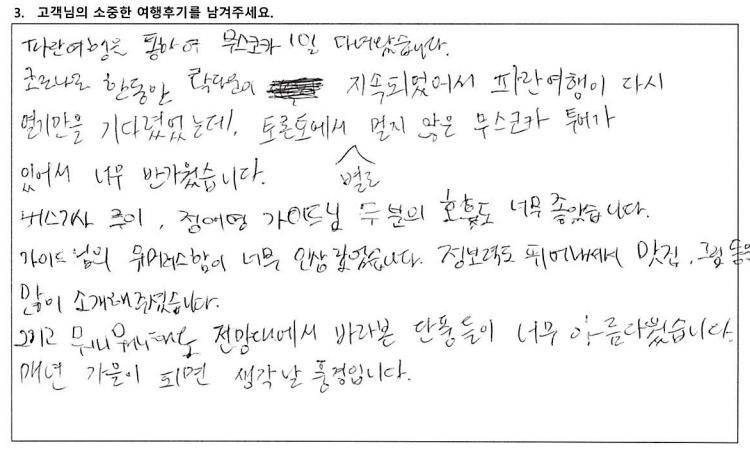 3. 고객님의 소중한 여행후기를 남겨주세요.
파란여행을 통하여 무스코카 1일 다녀왔습니다.
코로나로 한동안 락다운이 지속되었어서 파란여행이 다시
열기만을 기다렸었는데, 토론토에서 별로 멀지 않은 무스코카 투어가
있어서 너무 반가웠습니다.
버스기사 주이, 정애영 가이드님 두분의 호흡도 너무 좋았습니다.
가이드님의 유머러스함이 너무 인상깊었습니다. 정보력도 뛰어나셔서 맛집, 그림 등을
많이 소개해주셨습니다.
그리고 무엇보다 전망대에서 바라본 단풍들이 너무 아름다웠습니다.
매년 가을이 되면 생각날 풍경입니다.